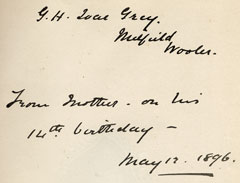 G. H. Grey.
Milfield
Wooler.
From Mother - on his
14th birthday -
May 12. 1896.